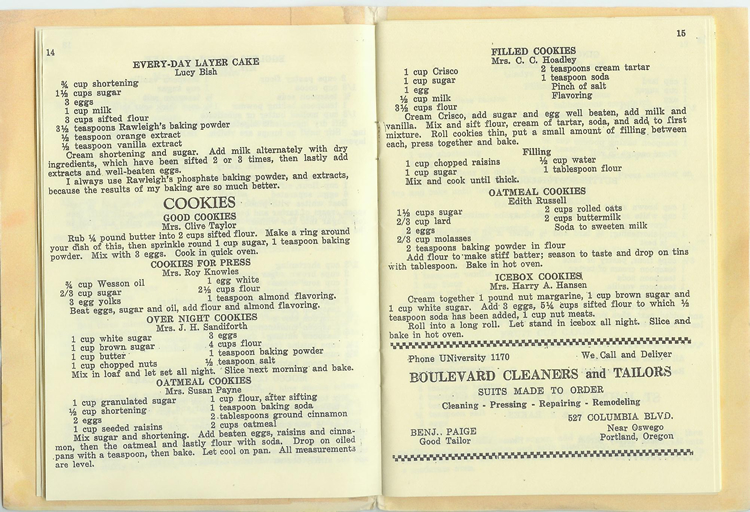 14
EVERY-DAY LAYER CAKE
Lucy Bish
¾ cup shortening
1½ cups sugar
3 eggs
1 cup milk
3 cups sifted flour
3½ teaspoons Rawleigh's baking powder
½ teaspoon orange extract
½ teaspoon vanilla extract
Cream shortening and sugar. Add milk alternately with dry
ingredients, which have been sifted 2 or 3 times, then lastly add
extracts and well-beaten eggs.
I always use Rawleigh's phosphate baking powder, and extracts,
because the results of my baking are so much better.
COOKIES
GOOD COOKIES
Mrs. Clive Taylor
Rub ¼ pound butter into 2 cups sifted flour. Make a ring around
your dish of this, then sprinkle round 1 cup sugar, 1 teaspoon baking
powder. Mix with 3 eggs. Cook in quick oven.
COOKIES FOR PRESS
Mrs. Roy Knowles
¾ cup Wesson oil
2/3 cup sugar
3 egg yolks
1 egg white
2½ cups flour
1 teaspoon almond flavoring.
Beat eggs, sugar and oil, add flour and almond flavoring.
OVER NIGHT COOKIES
Mrs. J. H. Sandiforth
1 cup white sugar
1 cup brown sugar
1 cup butter
1 cup chopped nuts
3 eggs
4 cups flour
1 teaspoon baking powder
½ teaspoon salt
Mix in loaf and let set all night. Slice next morning and bake.
OATMEAL COOKIES
Mrs. Susan Payne
1 cup granulated sugar
½ cup shortening
2 eggs
1 cup seeded raisins
1 cup flour, after sifting
1 teaspoon baking soda
2 tablespoons ground cinnamon
2 cups oatmeal
Mix sugar and shortening. Add beaten eggs, raisins and cinna-
mon, then the oatmeal and lastly flour with soda. Drop on oiled
pans with a teaspoon, then bake. Let cool on pan. All measurements
are level.
15
FILLED COOKIES
Mrs. C. C. Hoadley
1 cup Crisco
1 cup sugar
1 egg
½ cup milk
3½ cups flour
2 teaspoons cream tartar
1 teaspoon soda
Pinch of salt
Flavoring
Cream Crisco, add sugar and egg well beaten, add milk and
vanilla. Mix and sift flour, cream of tartar, soda, and add to first
mixture. Roll cookies thin, put a small amount of filling between
each, press together and bake.
Filling
1 cup chopped raisins
1 cup sugar
½ cup water
1 tablespoon flour
Mix and cook until thick.
OATMEAL COOKIES
Edith Russell
1½ cups sugar
2/3 cup lard
2 eggs
2/3 cup molasses
2 cups rolled oats
2 cups buttermilk
Soda to sweeten milk
2 teaspoons baking powder in flour
Add flour to make stiff batter; season to taste and drop on tins
with tablespoon. Bake in hot oven.
ICEBOX COOKIES
Mrs. Harry A. Hansen
Cream together 1 pound nut margarine, 1 cup brown sugar and
1 cup white sugar. Add 3 eggs, 5¼ cups sifted flour to which ½
teaspoon soda has been added, 1 cup nut meats.
Roll into a long roll. Let stand in icebox all night. Slice and
bake in hot oven.
Phone UNiversity 1170 We Call and Deliver
BOULEVARD CLEANERS and TAILORS
SUITS MADE TO ORDER
Cleaning - Pressing - Repairing - Remodeling
BENJ. PAIGE
Good Tailor
527 COLUMBIA BLVD.
Near Oswego
Portland, Oregon